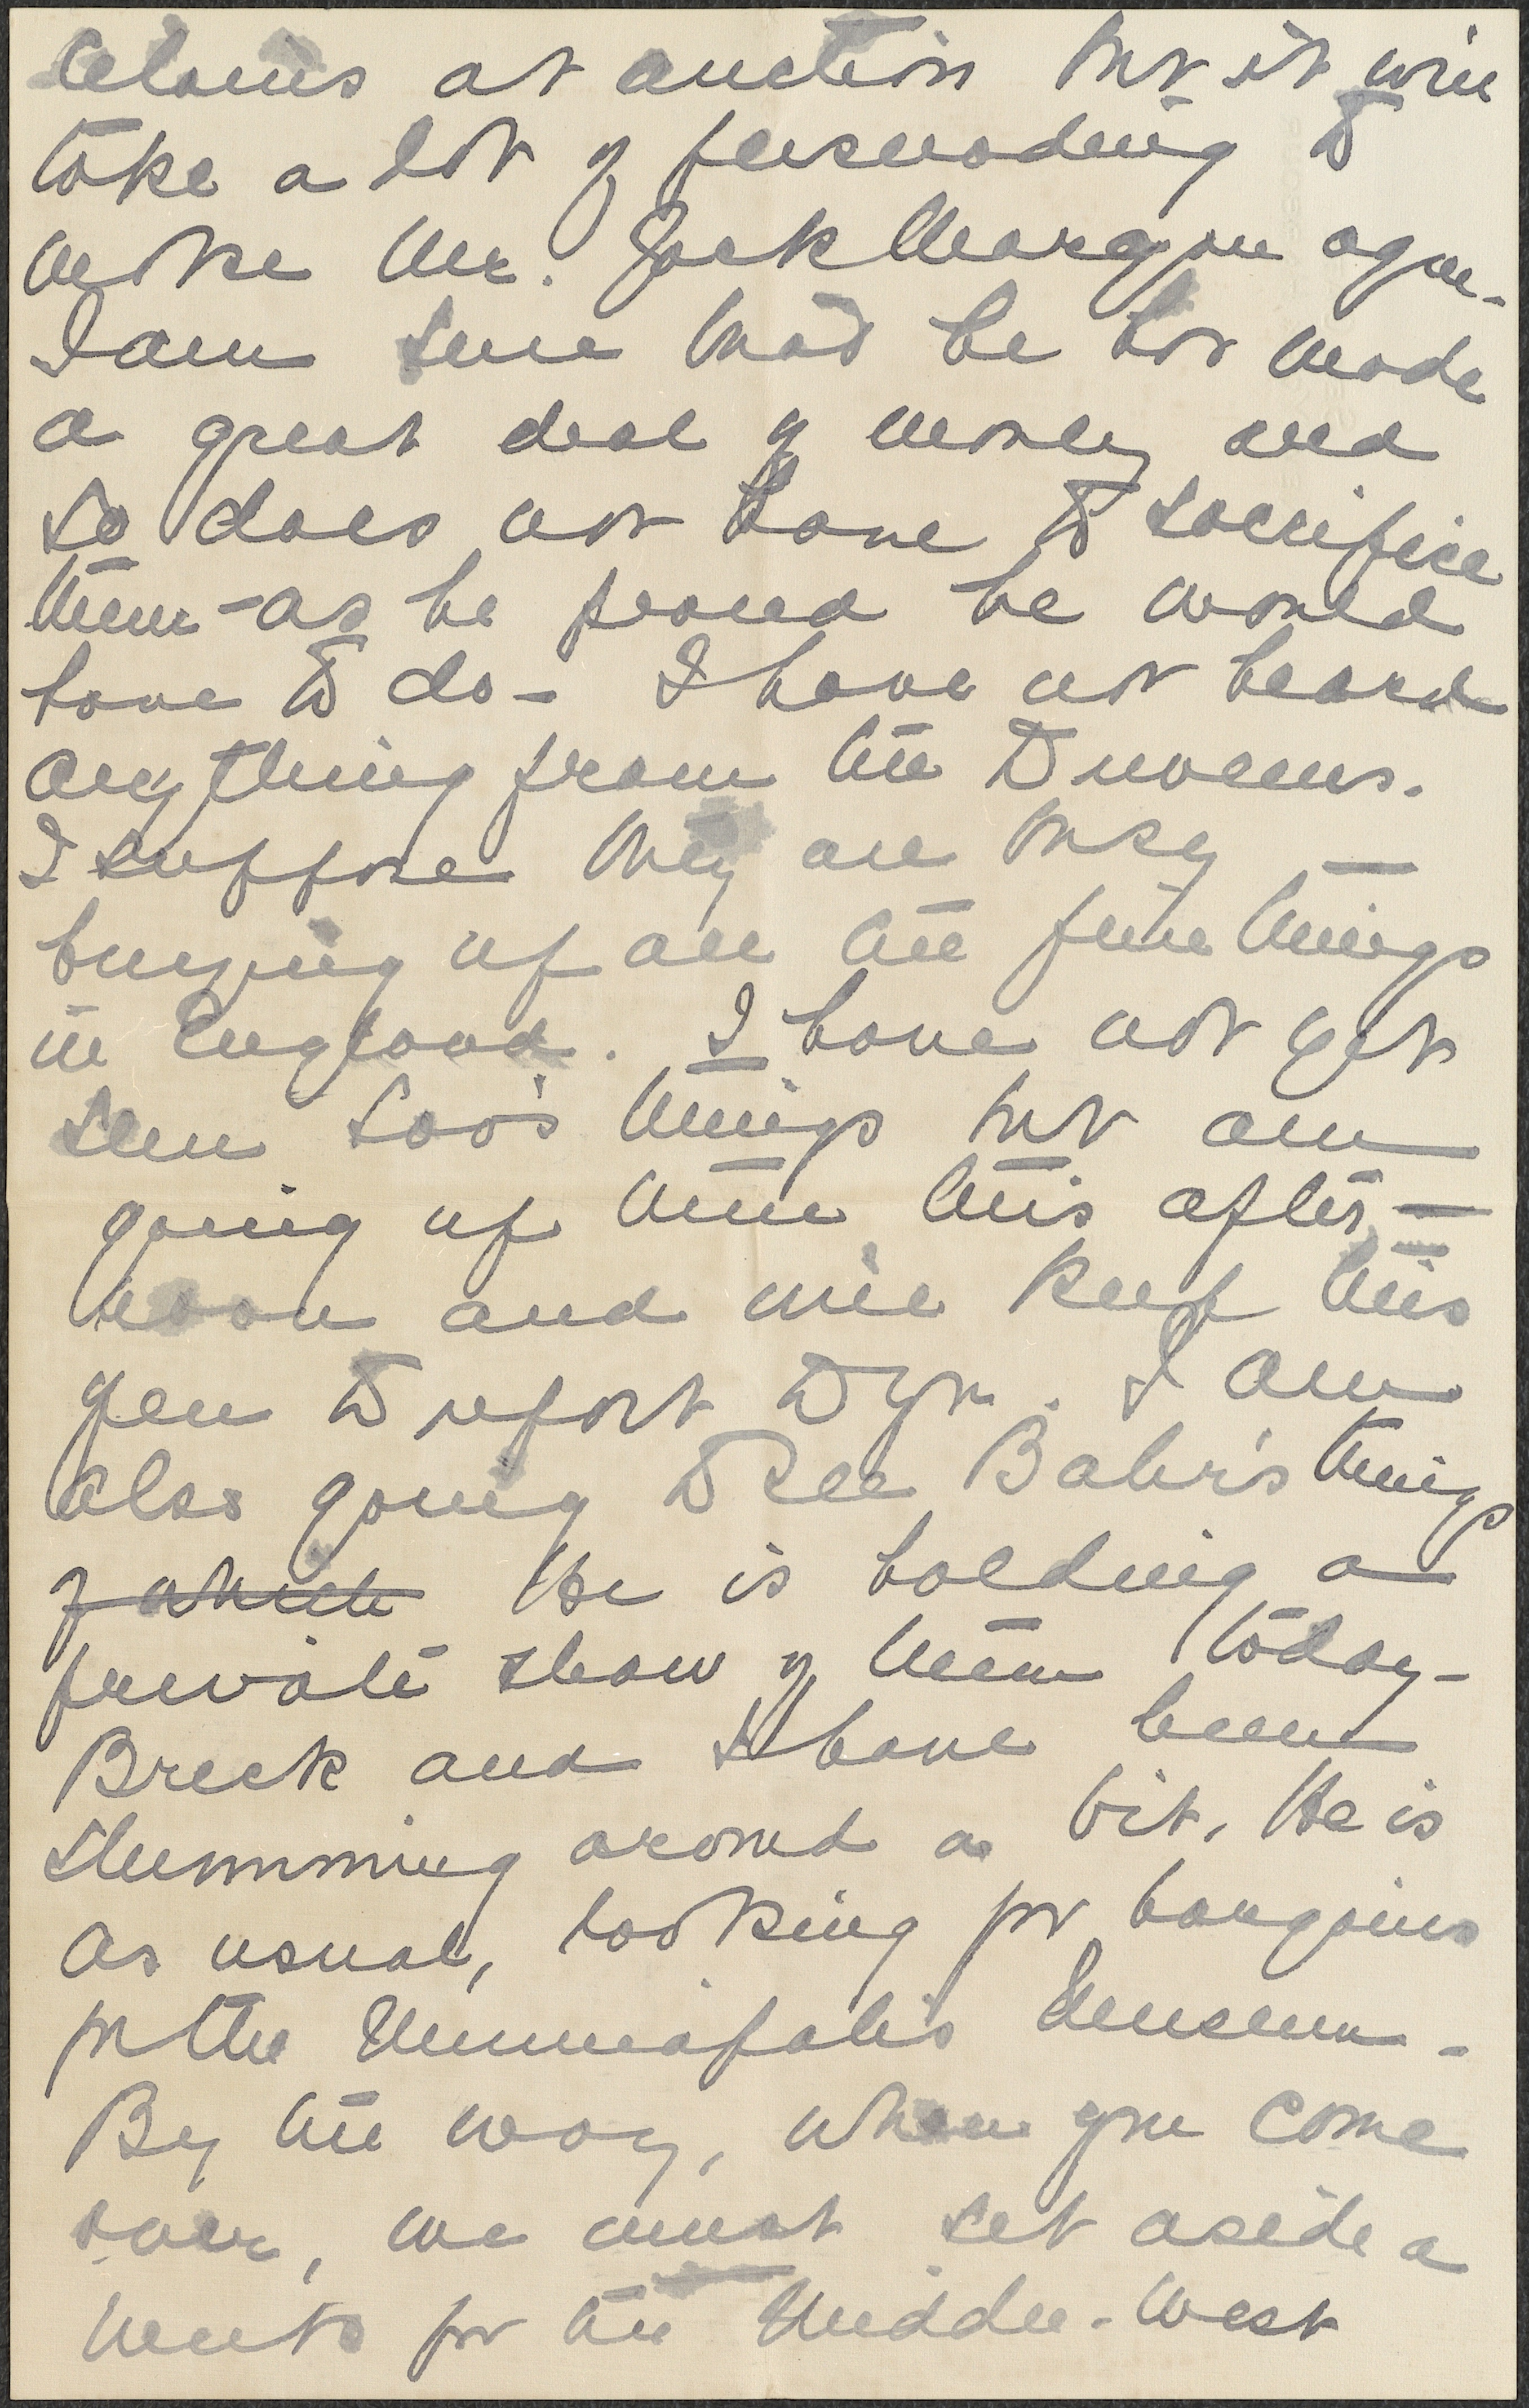 claims at auction but it will
take a lot of persuading to
make Mr. Jack Morgan agree.
I am sure that he has made
a great deal of money and
so does not have to sacrifice
them - as he feared he would
have to do - I have not heard
anything from the Duveens.
I suppose they are busy —
buying up all the fine things
in England. I have not yet
seen Loo's things but am
going up there this after-
noon and will keep this
open to report to you. I am
also going to see Bahr's things
of which He is holding a
private show of them today -
Breck and I have been
slumming around a bit. He is
as usual, looking for bargains
for the Minneapolis Museum -
By the way, when you come
over, we must set aside a
 for the Middle-West